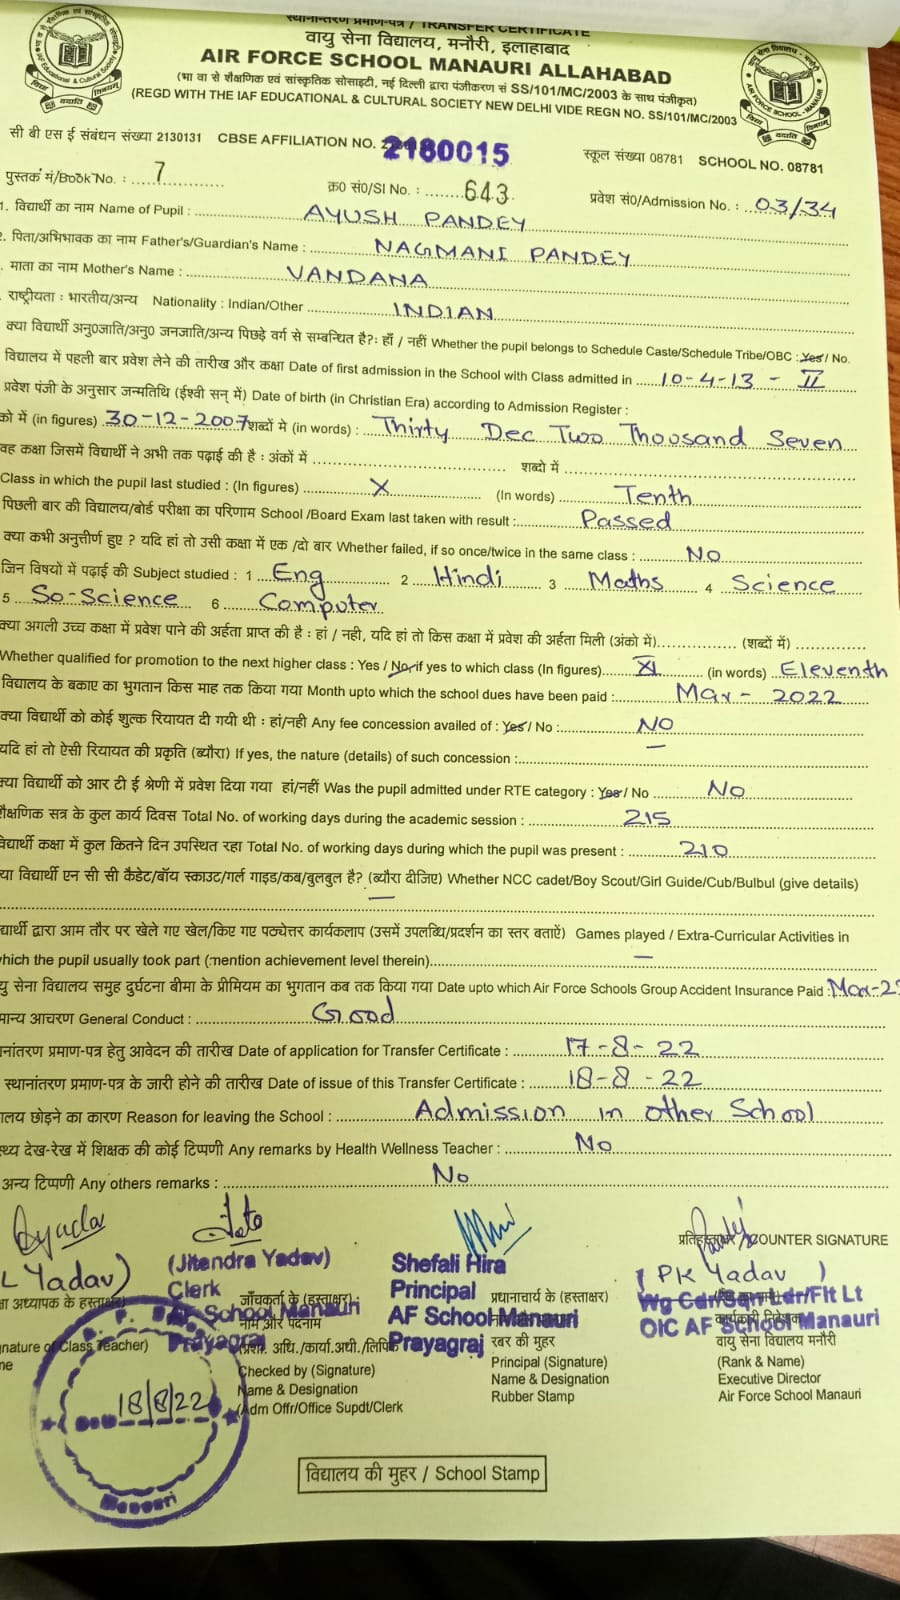 स्थानान्तरण प्रमाण-पत्र / TRANSFER CERTIFICATE
वायु सेना विद्यालय, मनौरी, इलाहाबाद
AIR FORCE SCHOOL MANAURI ALLAHABAD
(भा वा से शैक्षणिक एवं सांस्कृतिक सोसाइटी, नई दिल्ली द्वारा पंजीकरण सं SS/101/MC/2003 के साथ पंजीकृत)
(REGD WITH THE IAF EDUCATIONAL & CULTURAL SOCIETY NEW DELHI VIDE REGN NO. SS/101/MC/2003
सी बी एस ई संबंधन संख्या 2130131 CBSE AFFILIATION NO. 2180015 स्कूल संख्या 08781 SCHOOL NO. 08781
पुस्तक नं/Book No. : 7 क्र0 सं0/Sl No. : 643 प्रवेश सं0/Admission No. : 03/34
1. विद्यार्थी का नाम Name of Pupil : AYUSH PANDEY
2. पिता/अभिभावक का नाम Father's/Guardian's Name : NAGMANI PANDEY
. माता का नाम Mother's Name : VANDANA
. राष्ट्रीयता : भारतीय/अन्य Nationality : Indian/Other INDIAN
क्या विद्यार्थी अनु0जाति/अनु0 जनजाति/अन्य पिछड़े वर्ग से सम्बन्धित है?: हाँ / नहीं Whether the pupil belongs to Schedule Caste/Schedule Tribe/OBC : Yes / No.
विद्यालय में पहली बार प्रवेश लेने की तारीख और कक्षा Date of first admission in the School with Class admitted in 10-4-13 - II
प्रवेश पंजी के अनुसार जन्मतिथि (ईश्वी सन् में) Date of birth (in Christian Era) according to Admission Register :
को में (in figures) 30-12-2007 शब्दों मे (in words) : Thirty Dec Two Thousand Seven
वह कक्षा जिसमें विद्यार्थी ने अभी तक पढ़ाई की है : अंकों में शब्दो में
Class in which the pupil last studied : (In figures) X (In words) Tenth
पिछली बार की विद्यालय/बोर्ड परीक्षा का परिणाम School /Board Exam last taken with result : Passed
क्या कभी अनुत्तीर्ण हुए ? यदि हां तो उसी कक्षा में एक /दो बार Whether failed, if so once/twice in the same class : NO
जिन विषयों में पढ़ाई की Subject studied : 1 Eng 2 Hindi 3 Maths 4 Science
5 So-Science 6 Computer
क्या अगली उच्च कक्षा में प्रवेश पाने की अर्हता प्राप्त की है : हां / नही, यदि हां तो किस कक्षा में प्रवेश की अर्हता मिली (अंको में) (शब्दों में)
Whether qualified for promotion to the next higher class : Yes / No, if yes to which class (In figures) XI (in words) Eleventh
विद्यालय के बकाए का भुगतान किस माह तक किया गया Month upto which the school dues have been paid : Mar - 2022
क्या विद्यार्थी को कोई शुल्क रियायत दी गयी थी : हां/नही Any fee concession availed of : Yes / No : NO
यदि हां तो ऐसी रियायत की प्रकृति (ब्यौरा) If yes, the nature (details) of such concession : —
क्या विद्यार्थी को आर टी ई श्रेणी में प्रवेश दिया गया हां/नहीं Was the pupil admitted under RTE category : Yes / No No
शैक्षणिक सत्र के कुल कार्य दिवस Total No. of working days during the academic session : 215
विद्यार्थी कक्षा में कुल कितने दिन उपस्थित रहा Total No. of working days during which the pupil was present : 210
या विद्यार्थी एन सी सी कैडेट/बॉय स्काउट/गर्ल गाइड/कब/बुलबुल है? (ब्यौरा दीजिए) Whether NCC cadet/Boy Scout/Girl Guide/Cub/Bulbul (give details)
—
द्यार्थी द्वारा आम तौर पर खेले गए खेल/किए गए पठ्येत्तर कार्यकलाप (उसमें उपलब्धि/प्रदर्शन का स्तर बताऐं) Games played / Extra-Curricular Activities in
which the pupil usually took part (mention achievement level therein) —
यु सेना विद्यालय समुह दुर्घटना बीमा के प्रीमियम का भुगतान कब तक किया गया Date upto which Air Force Schools Group Accident Insurance Paid : Mar-2
मान्य आचरण General Conduct : Good
नांतरण प्रमाण-पत्र हेतु आवेदन की तारीख Date of application for Transfer Certificate : 17-8-22
स्थानांतरण प्रमाण-पत्र के जारी होने की तारीख Date of issue of this Transfer Certificate : 18-8-22
ालय छोड़ने का कारण Reason for leaving the School : Admission in other School
स्थ्य देख-रेख में शिक्षक की कोई टिप्पणी Any remarks by Health Wellness Teacher : No
अन्य टिप्पणी Any others remarks : No
COUNTER SIGNATURE
L Yadav) (Jitendra Yadav) Shefali Hira (PK Yadav)
Clerk Principal Wg Cdr/Sqn Ldr/Flt Lt
AF School Manauri AF School Manauri OIC AF School Manauri
Prayagraj Prayagraj
अध्यापक के हस्ताक्षर) जाँचकर्ता के (हस्ताक्षर) प्रधानाचार्य के (हस्ताक्षर)
नाम और पदनाम
रबर की मुहर वायु सेना विद्यालय मनौरी
nature of Class Teacher) Checked by (Signature) Principal (Signature) (Rank & Name)
me Name & Designation Name & Designation Executive Director
(Adm Offr/Office Supdt/Clerk Rubber Stamp Air Force School Manauri
18/8/22
Manauri
विद्यालय की मुहर / School Stamp